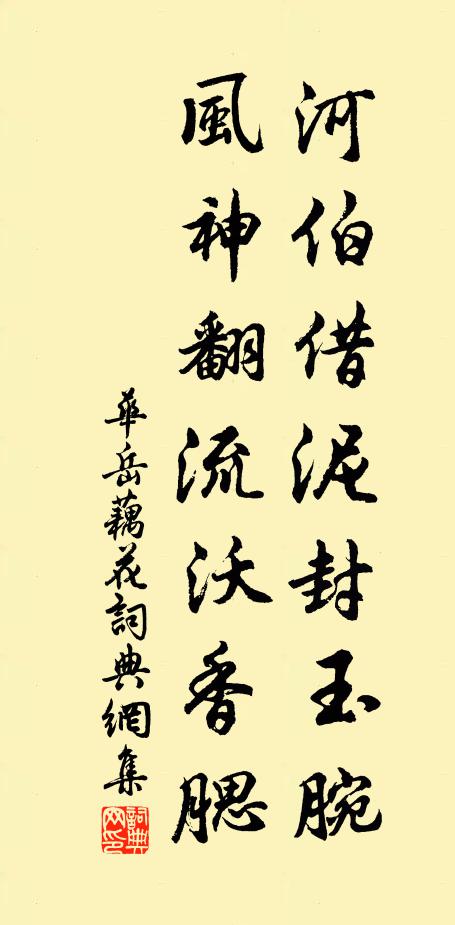 河伯借泥封玉腕
風神翻流沃香腮
華岳藕花詞典網集
詞典網印